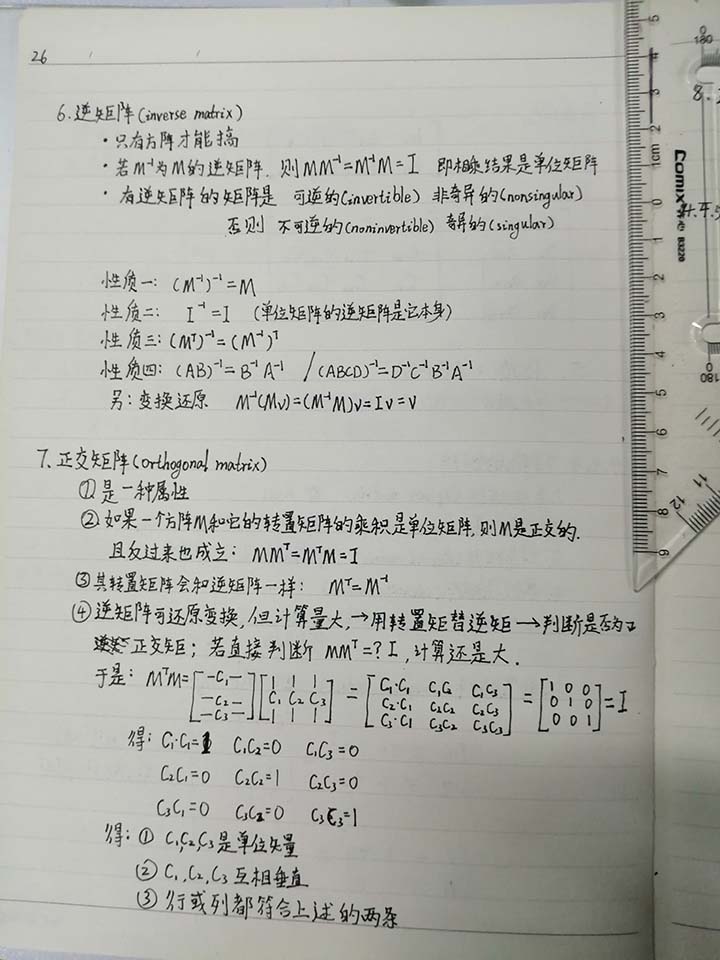 26
6. 逆矩阵(inverse matrix)
· 只有方阵才能搞
· 若M⁻¹为M的逆矩阵, 则MM⁻¹=M⁻¹M=I 即相乘结果是单位矩阵
· 有逆矩阵的矩阵是 可逆的(invertible) 非奇异的(nonsingular)
否则 不可逆的(noninvertible) 奇异的(singular)
性质一: (M⁻¹)⁻¹=M
性质二: I⁻¹=I (单位矩阵的逆矩阵是它本身)
性质三: (Mᵀ)⁻¹=(M⁻¹)ᵀ
性质四: (AB)⁻¹=B⁻¹A⁻¹ /(ABCD)⁻¹=D⁻¹C⁻¹B⁻¹A⁻¹
另: 变换还原 M⁻¹(Mv)=(M⁻¹M)v=Iv=v
7. 正交矩阵(orthogonal matrix)
①是一种属性
②如果一个方阵M和它的转置矩阵的乘积是单位矩阵,则M是正交的.
且反过来也成立: MMᵀ=MᵀM=I
③其转置矩阵会和逆矩阵一样: Mᵀ=M⁻¹
④逆矩阵可还原变换,但计算量大,→用转置矩替逆矩→判断是否为
正交矩; 若直接判断 MMᵀ=?I,计算还是大.
于是: MᵀM=[-C₁- -C₂- -C₃-][| | | C₁ C₂ C₃ | | |]=[C₁·C₁ C₁C₂ C₁C₃ C₂·C₁ C₂C₂ C₂C₃ C₃·C₁ C₃C₂ C₃C₃]=[1 0 0 0 1 0 0 0 1]=I
得: C₁·C₁=1 C₁C₂=0 C₁C₃=0
C₂C₁=0 C₂C₂=1 C₂C₃=0
C₃C₁=0 C₃C₂=0 C₃C₃=1
得: ① C₁,C₂,C₃是单位矢量
② C₁,C₂,C₃互相垂直
③ 行或列都符合上述的两条
5
4
3
2
1cm
0
1
2
3
4
5
6
7
8
9
Comix 齐心 B3220
0
180
0
180
11
12
8.